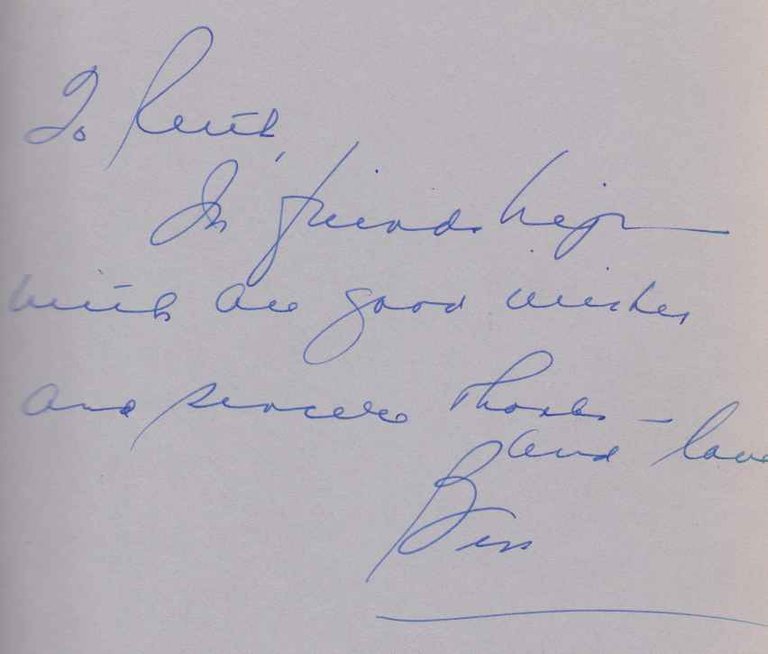 To Ruth,
In friendship —
with all good wishes
and sincere thanks —
and love
Bess